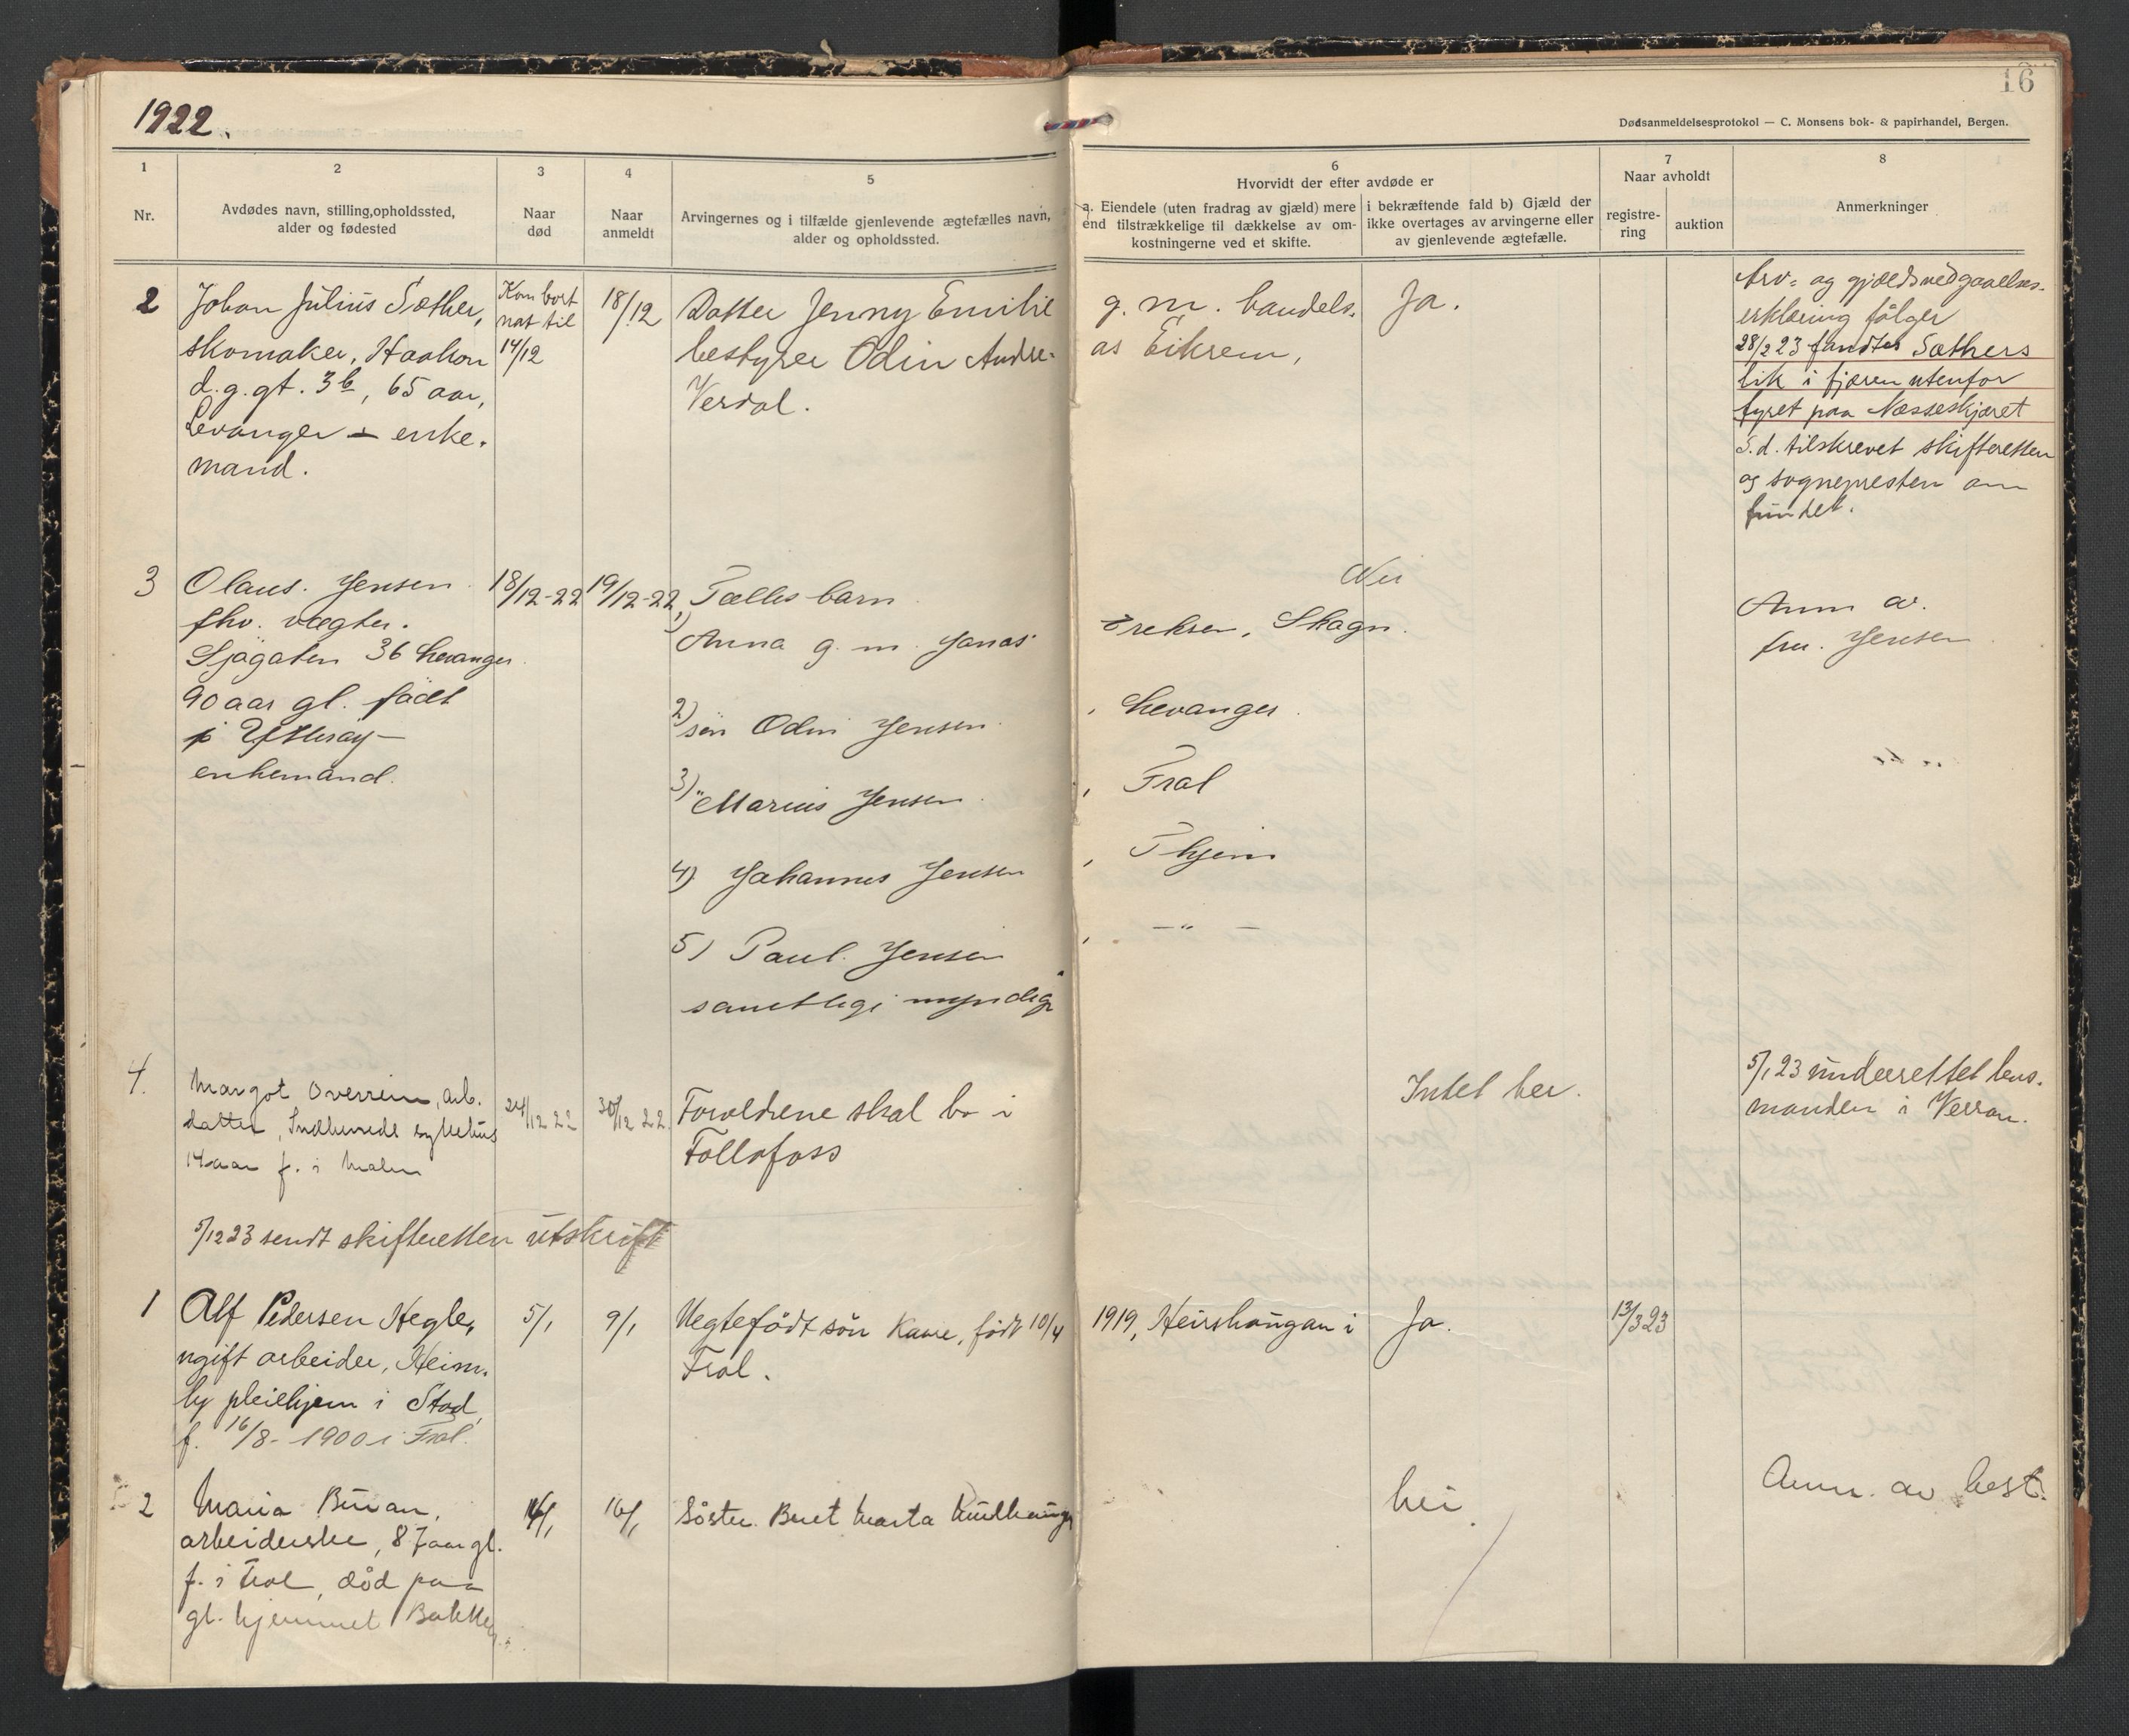 1922.
16
Dødsanmeldelsesprotokol — C. Monsens bok- & papirhandel, Bergen.
1
Nr.
2
Avdødes navn, stilling, opholdssted,
alder og fødested
3
Naar
død
4
Naar
anmeldt
5
Arvingernes og i tilfælde gjenlevende ægtefælles navn,
alder og opholdssted.
6
Hvorvidt der efter avdøde er
a. Eiendele (uten fradrag av gjæld) mere
end tilstrækkelige til dækkelse av om-
kostningerne ved et skifte.
i bekræftende fald b) Gjæld der
ikke overtages av arvingerne eller
av gjenlevende ægtefælle.
7
Naar avholdt
registre-
ring
auktion
8
Anmerkninger
2
Johan Julius Sæther,
skomaker, Haakon
d.g.gt. 3b, 65 aar,
Levanger – enke-
mand.
Kom bort
nat til
14/12
18/12
Datter Jenny Emilie
bestyrer Odin Andre-
Verdal.
g. m. handels-
as Eikrem,
Ja.
Arv- og gjældsvedgaaelses-
erklæring følger
28/2 23 fandtes Sæthers
lik i fjæren utenfor
fyret paa Næsseskjæret
S.d. tilskrevet skifteretten
og sognepresten om
fundet.
3
Olaus. Jensen
fhv. vægter.
Sjøgaten 36 Levanger.
90 aar gl. født
på Ytterøy –
enkemand.
18/12-22
19/12-22
Fælles barn
1)
Anna g. m. Jonas
2) søn Odin Jensen
3) " Marius Jensen
4) Johannes Jensen
5) Paul. Jensen
samtlige myndige
Nei
Ereksen, Skogn.
, Levanger.
, Frol
, Thjem
, — " —
Anm av.
fru. Jensen
4.
Margot Overrein, arb.
datter, Indherreds sykehus
14 aar f. i Malm
24/12 22
30/12 22.
Forældrene skal bo i
Follafoss
Intet her.
5/1 23 underrettet lens-
manden i Verran.
5/1 23 sendt skifteretten utskrift
1
Alf Pedersen Hegle,
ugift arbeider, Heim-
ly pleiehjem i Stod,
f. 16/8-1900 i Frol.
5/1
9/1
Uegtefødt søn Kaare, født 10/4
Frol.
1919, Heirshaugan i
Ja.
13/3 23
2
Maria Buran,
arbeiderske, 87 aar gl.
f. i Frol, død paa
gl. hjemmet Bakke
16/1
16/1
Søster Beret Marta
Nei.
Anm. av best.